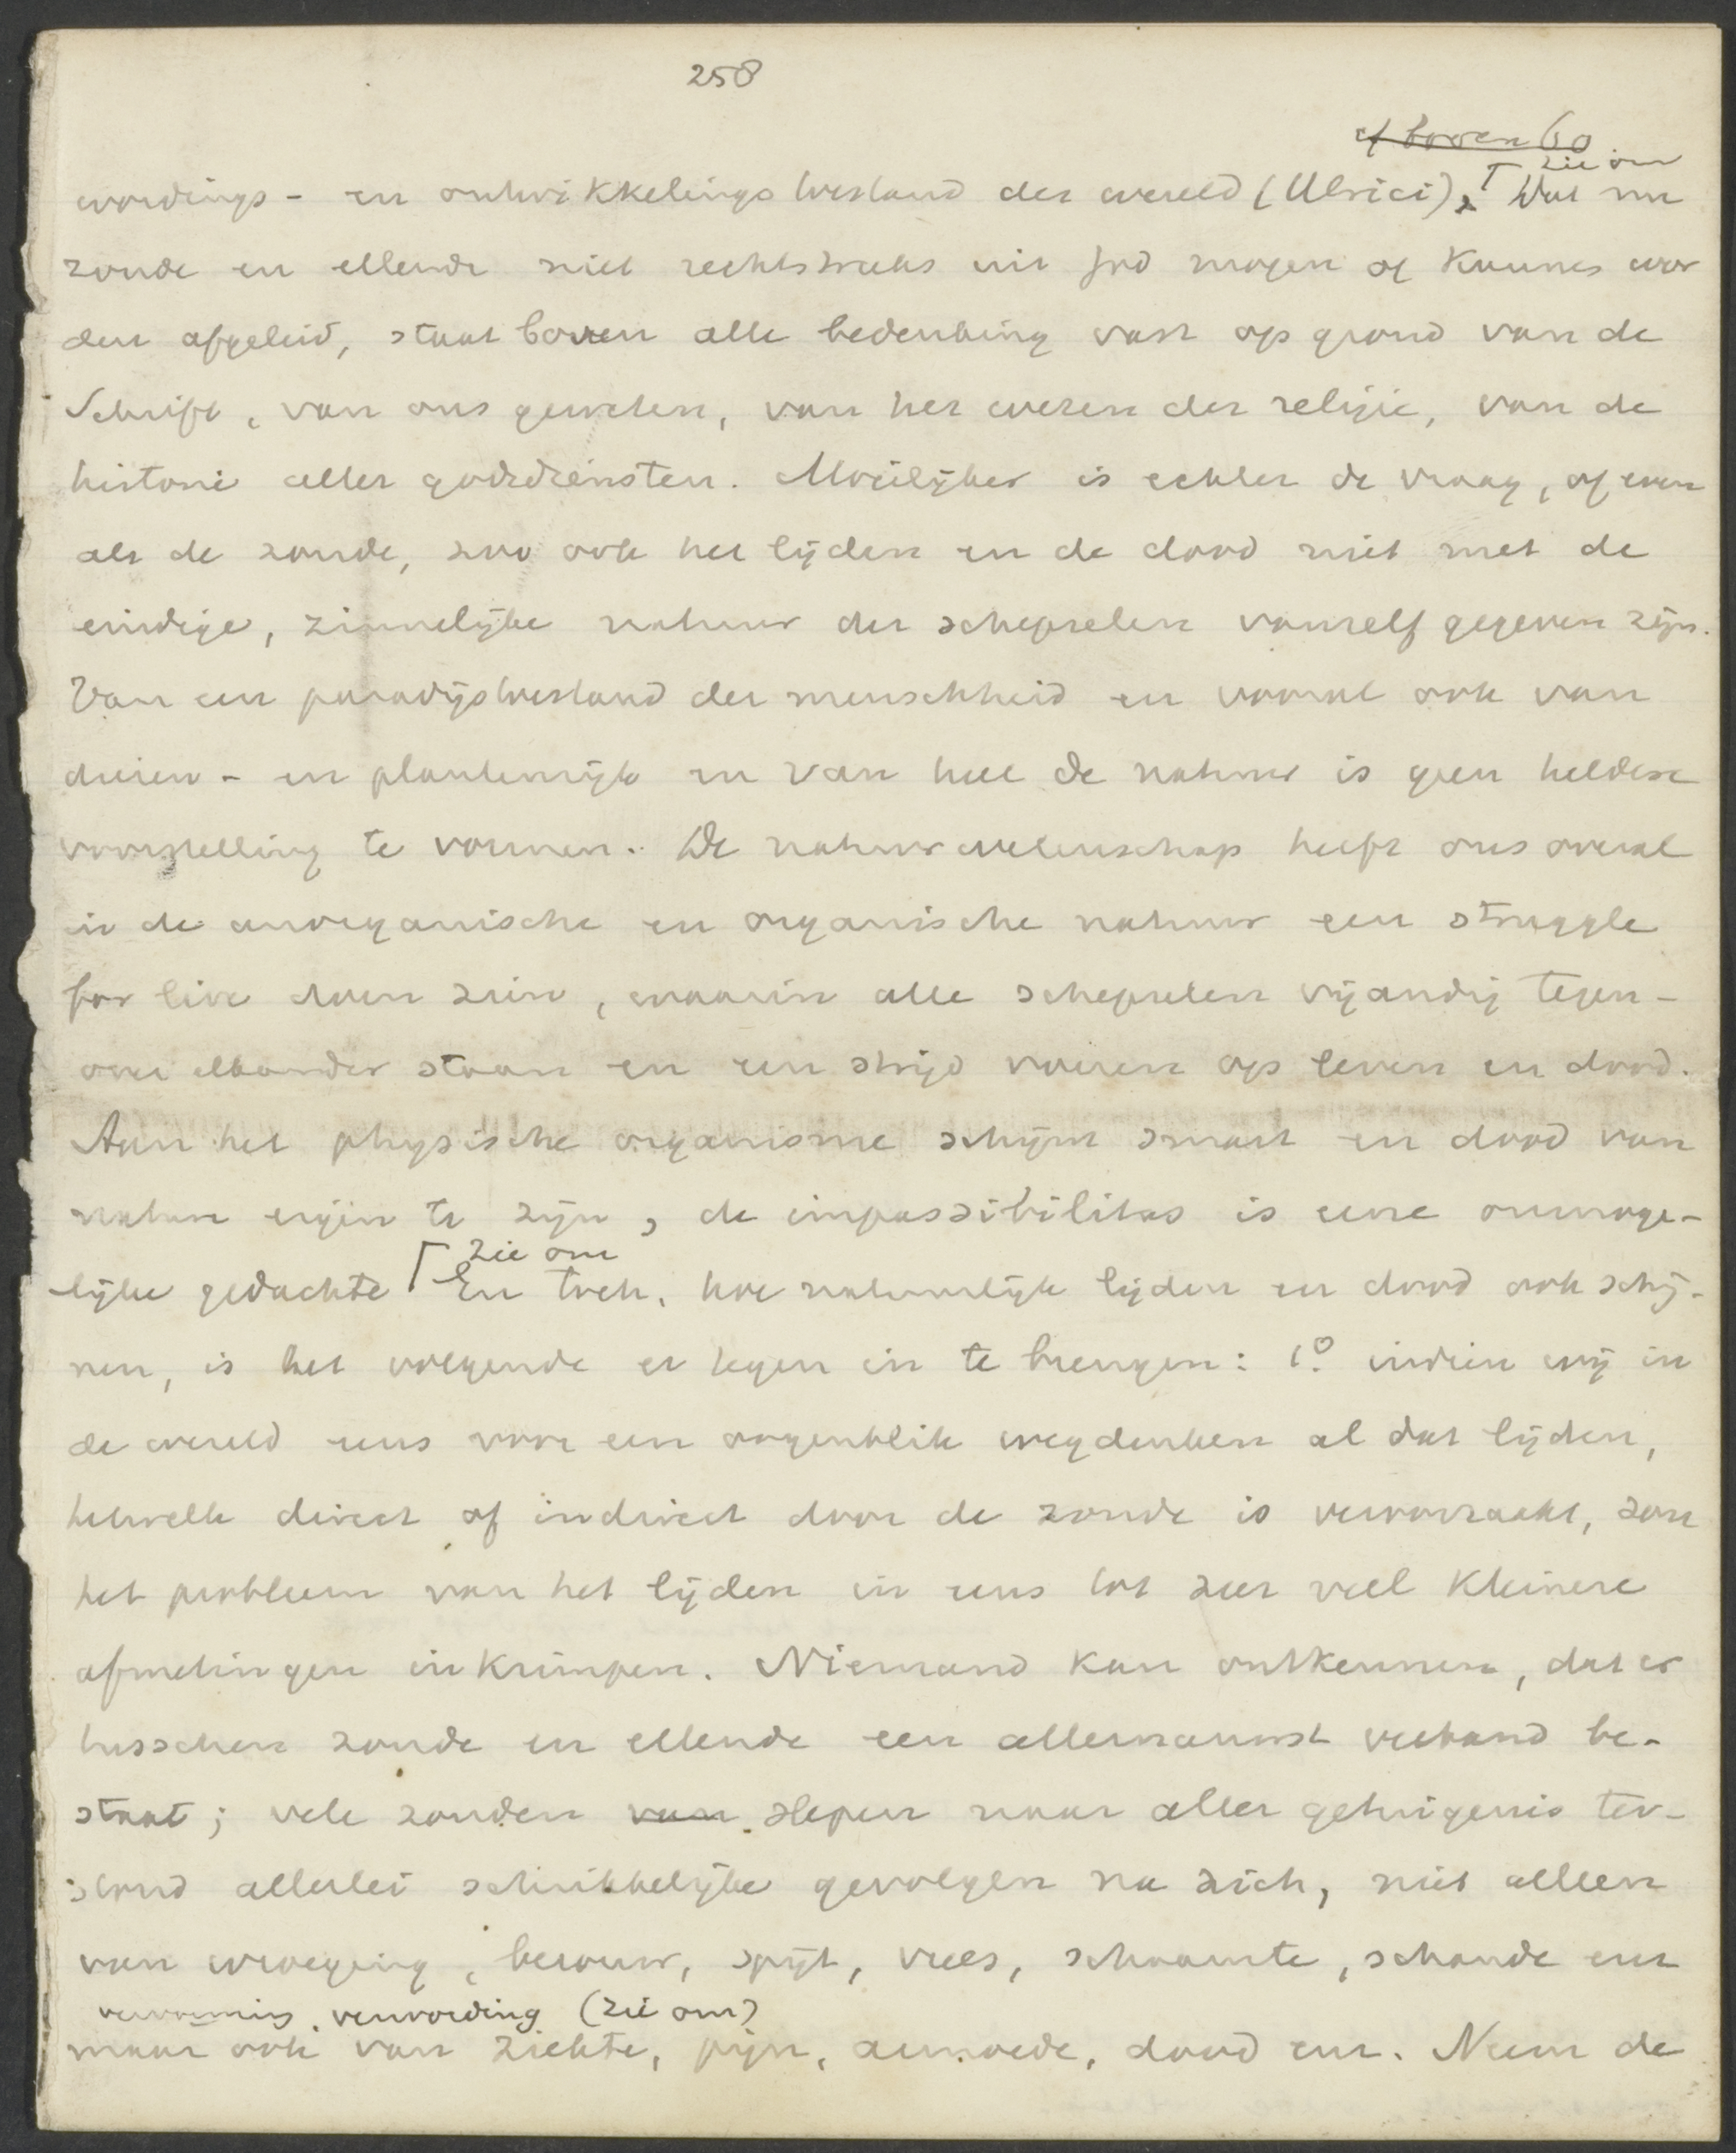 258
cf boven 60
zie om
wordings- en ontwikkelingstoestand der wereld (Ulrici). Dat nu
zonde en ellende niet rechtstreeks uit God mogen of kunnen wor
den afgeleid, staat boven alle bedenking vast op grond van de
Schrift, van ons geweten, van het wezen der religie, van de
historie aller godsdiensten. Moeilijker is echter de vraag, of even
als de zonde, zoo ook het lijden en de dood niet met de
eindige, zinnelijke natuur der schepselen vanzelf gegeven zijn.
Van een paradijstoestand der menschheid en vooral ook van
dieren- en plantenrijk en van heel de natuur is geen heldere
voorstelling te vormen. De natuurwetenschap heeft ons overal
in de anorganische en organische natuur een struggle
for live doen zien, waarin alle schepselen vijandig tegen-
over elkander staan en een strijd voeren op leven en dood.
Aan het physische organisme schijnt smart en dood van
nature eigen te zijn, de impassibilitas is eene onmoge-
zie om
lijke gedachte En toch, hoe natuurlijk lijden en dood ook schij-
nen, is het volgende er tegen in te brengen: 1° indien wij in
de wereld eens voor een oogenblik wegdenken al dat lijden,
hetwelk direct of indirect door de zonde is veroorzaakt, zou
het probleem van het lijden in eens tot zeer veel kleinere
afmetingen inkrimpen. Niemand kan ontkennen, dat er
tusschen zonde en ellende een allernauwst verband be-
staat; vele zonden van slepen naar aller getuigenis ter-
stond allerlei schrikkelijke gevolgen na zich, niet alleen
van wroeging, berouw, spijt, vrees, schaamte, schande enz
verwording (zie om)
maar ook van ziekte, pijn, armoede, dood enz. Neem de